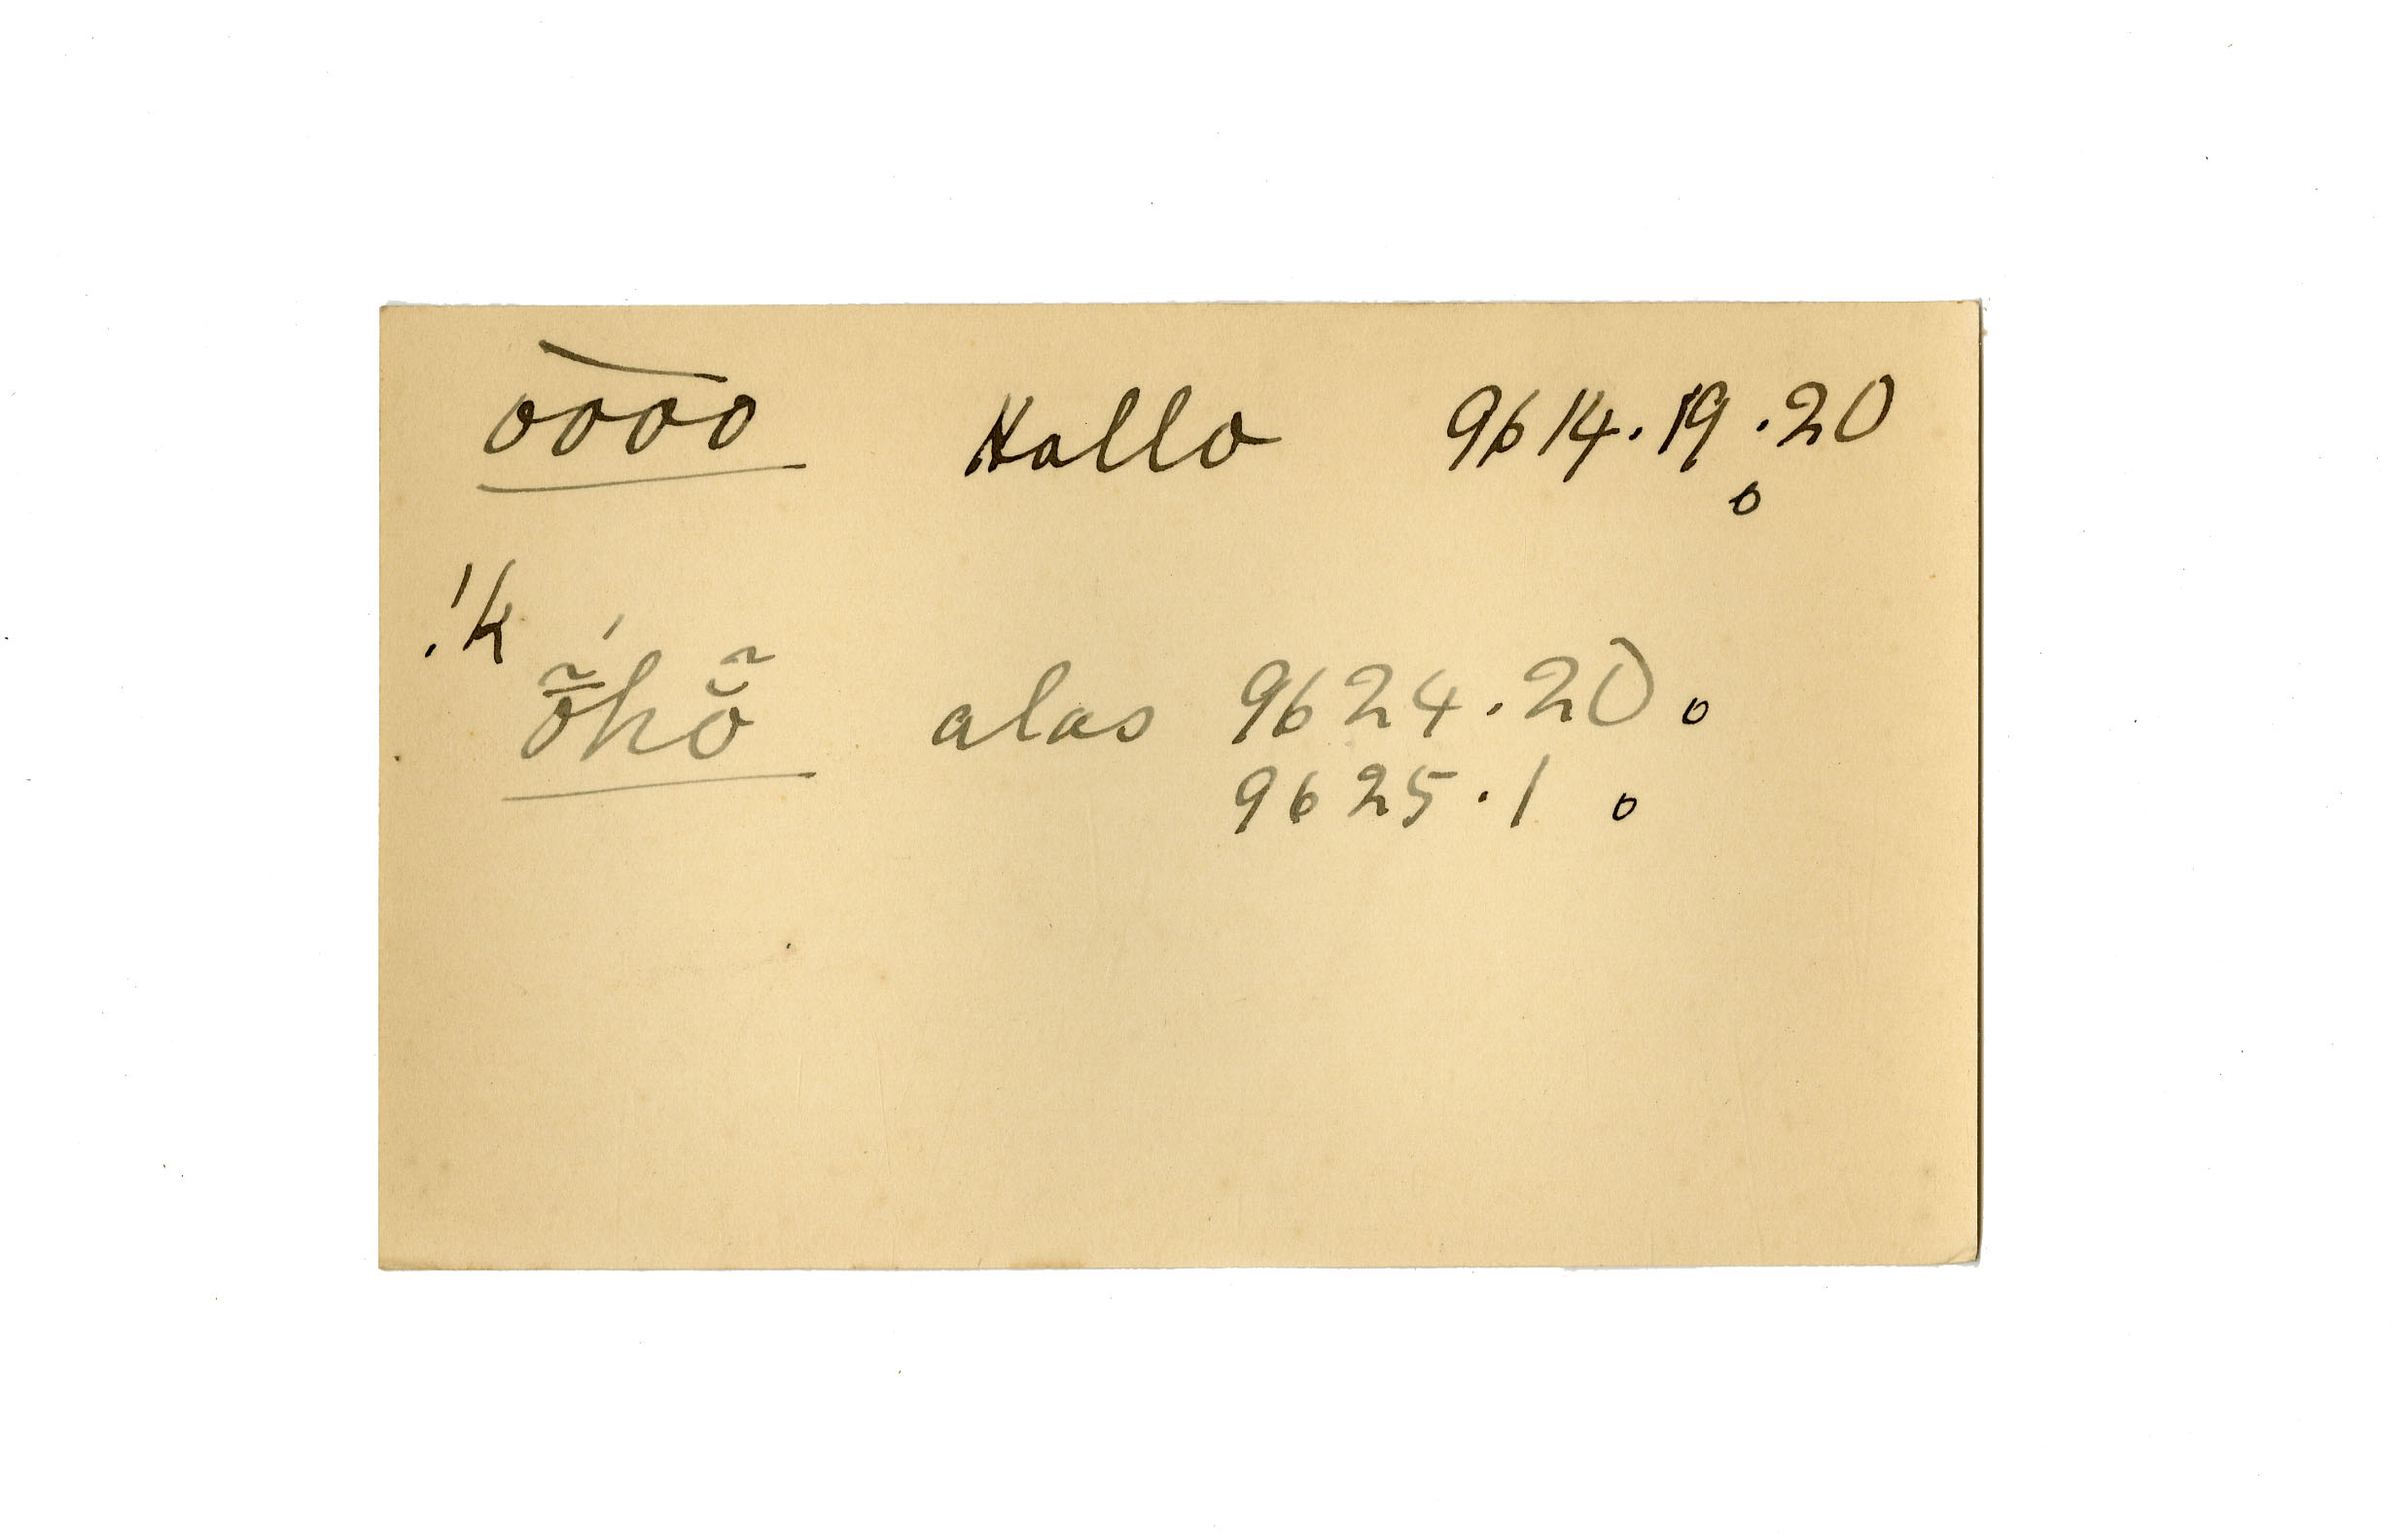 o͞o͞o͞o Hallo 9614.19.20
o
!k
ṓ̃hŏ̃ alas 9624.20 o
9625.1 o